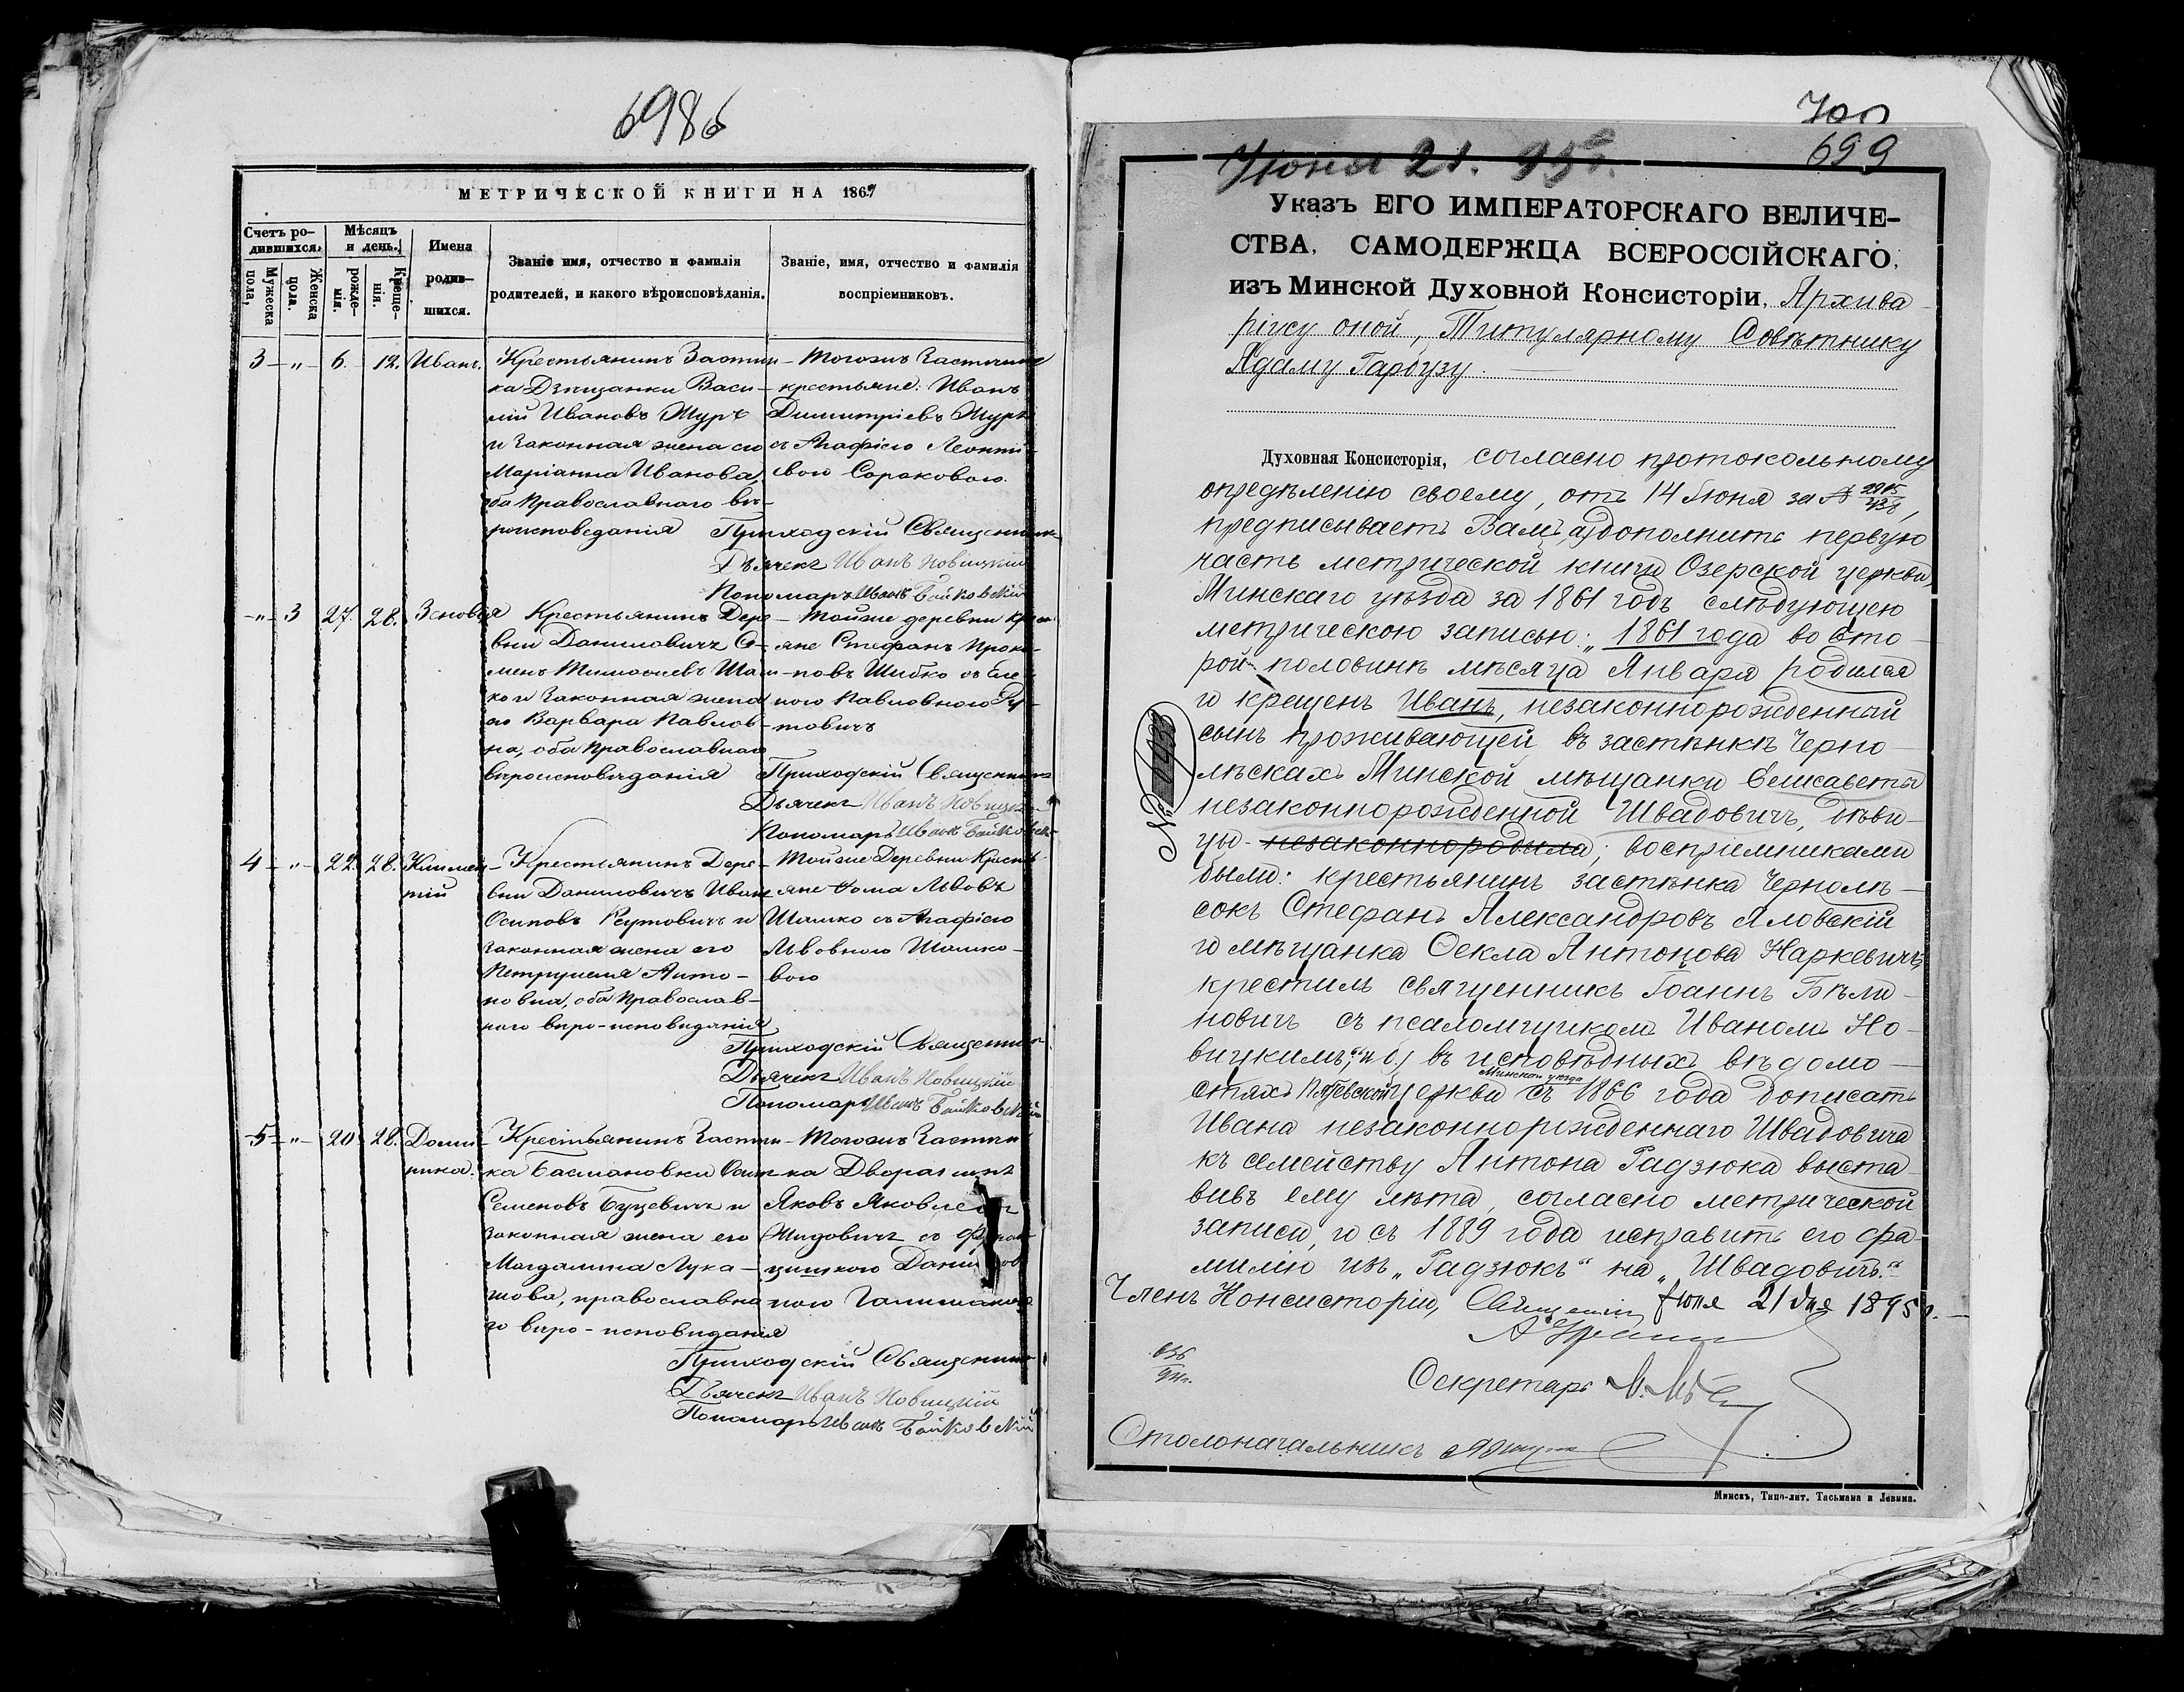 698б
МЕТРИЧЕСКОЙ КНИГИ НА 1867
Счетъ ро-
дившихся.
Мужеска
пола,
Женска
пола.
Мѣсяцъ
и день.
рожде-
нія.
Креще-
нія.
Имена
родив-
шихся.
Званіе имя, отчество и фамилія
родителей, и какого вѣроисповѣданія.
Званіе, имя, отчество и фамилія
воспріемниковъ.
3 - „ - 6. 12. Иванъ.
Крестьянинъ Застѣн-
ка Васи-
лій Ивановъ Журъ
и законная жена его
Маріанна Иванова,
оба Православнаго вѣ-
роисповеданія
Тогожъ Застѣнка
крестьяне: Иванъ
Димитріевъ Журъ
съ Агафіею Леонтій-
вою Сороковою.
Приходскій Священникъ
Дьячекъ Иванъ Новицкій
Пономаръ Иванъ Байковскій
- „ - 3 27. 28. Зеновія
Крестьянинъ Дере-
вни Даниловичъ Се-
менъ
ко и Законная жена
его Варвара Павлов-
на, оба Православнаго
вѣроисповѣданія
Тойже деревни крест-
яне Стефанъ Проко-
повъ Шибко съ Еле-
ною Павловною
товичъ
Приходскій Священникъ
Дьячекъ Иванъ Новицкій
Пономаръ Иванъ Байковскій
4 - „ - 22. 28. Климен-
тій
Крестьянинъ Дере-
вни Даниловичъ Иванъ
Осиповъ Реутовичъ и
законная жена его
Петрунеля Анто-
новна, оба Православ-
наго вѣро-исповѣданія
Тойже Деревни Кресть-
яне Ѳома Львовъ
Шашко съ Агафіею
Львовною Шашко-
вою
Приходскій Священникъ
Дьячекъ Иванъ Новицкій
Пономаръ Иванъ Байковскій
5 - „ - 20 28. Доми-
ника.
Крестьянинъ Застѣн-
ка Басмановки Осипъ
Семеновъ Буцевичъ и
законная жена его
Магдалина Лука-
шова, православна-
го вѣро-исповѣданія
Тогожъ Застѣн-
ка Дворянинъ
Яковъ Яковлевъ
Жидовичъ съ Фран-
цишкою Данилов-
ною
Приходскій Священникъ
Дьячекъ Иванъ Новицкій
Пономаръ Иванъ Байковскій
700
699
Іюня 21. 95 г.
Указъ ЕГО ИМПЕРАТОРСКАГО ВЕЛИЧЕ-
СТВА, САМОДЕРЖЦА ВСЕРОССІЙСКАГО,
изъ Минской Духовной Консисторіи, Архива-
ріусу оной, Титулярному Совѣтнику
Адаму Гарбузу.
Духовная Консисторія, согласно протокольному
опредѣленію своему, отъ 14 Іюня за №
предписываетъ Вамъ, а) дополнить первую
часть метрической книги Озерской церкви,
Минскаго уѣзда за 1861 годъ слѣдующею
метрическою записью: „1861 года во вто-
рой половинѣ мѣсяца Января родился
и крещенъ Иванъ, незаконнорожденный
сынъ проживающей въ застѣнкѣ Черно-
лѣскахъ Минской мѣщанки Елисаветы
незаконнорожденной Швадовичъ, дѣви-
цы незаконнородила; воспріемниками
были: крестьянинъ застѣнка Чернолѣ-
сокъ Стефанъ Александровъ Яловскій
и мѣщанка Ѳекла Антонова Наркевичъ;
крестилъ священникъ Іоаннъ Бѣли-
новичъ съ псаломщикомъ Иваномъ Но-
вицкимъ“; и б) въ исповѣдныхъ вѣдомо-
стяхъ церкви Минскаго уѣзда съ 1866 года дописать
Ивана незаконнорожденнаго Швадовича
къ семейству Антона Гадзюка выста-
вивъ ему лѣта, согласно метрической
записи, и съ 1889 года исправить его фа-
милію изъ „Гадзюкъ“ на „Швадовичъ.“
Членъ Консисторіи, Священникъ Іюня 21 дня 1895 г.
Секретарь
Столоначальникъ
№
Минскъ, Типо-лит. Тасьмана и Левина.